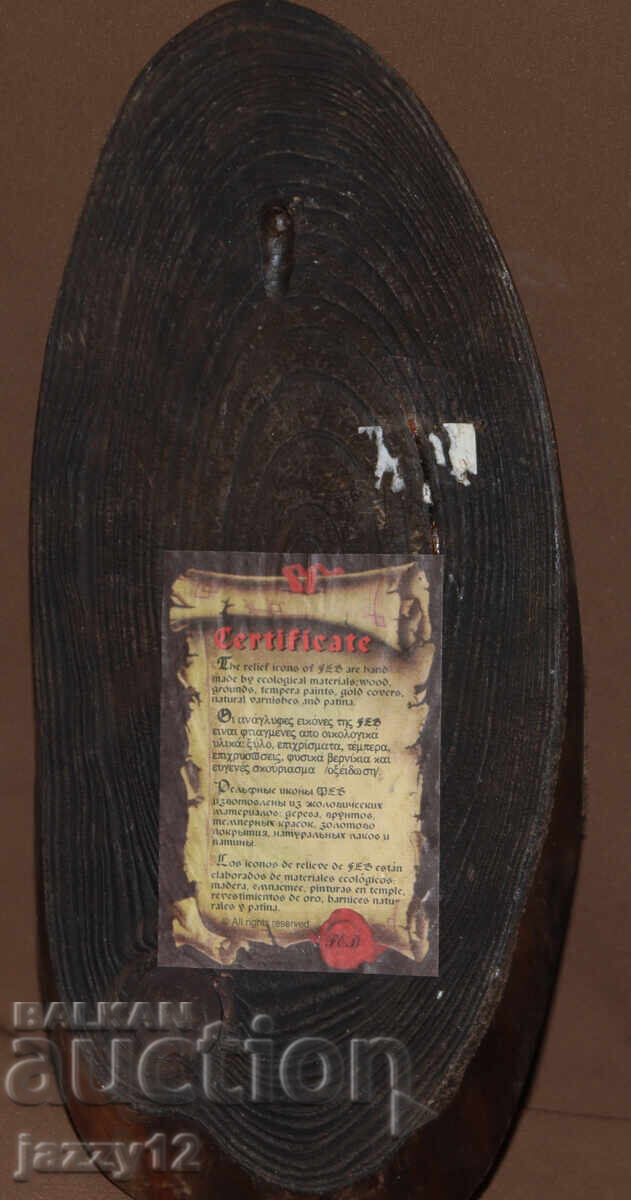 Certificate
The relief icons of FEB are hand
made by ecological materials: wood,
grounds, tempera paints, gold covers,
natural varnishes and patina.
Οι ανάγλυφες εικόνες της FEB
ειναι φτιαγμένες απο οικολογικα
υλικά: ξύλο, επιχρίσματα, τέμπερα,
επιχρυσώσεις, φυσικά βερνίκια και
ευγενές σκούριασμα /οξείδωση/.
Рельфные иконы ФЕБ
изготовлены из жологических
материалов: дерева, грунтов,
темперных красок, золотово
покрытия, натуральных лаков и
патины.
Los iconos de relieve de FEB están
elaborados de materiales ecológicos:
madera, empastee, pinturas en temple,
revestimientos de oro, barnices natu-
rales y patina.
© All rights reserved
BALKAN
auction
jazzy12